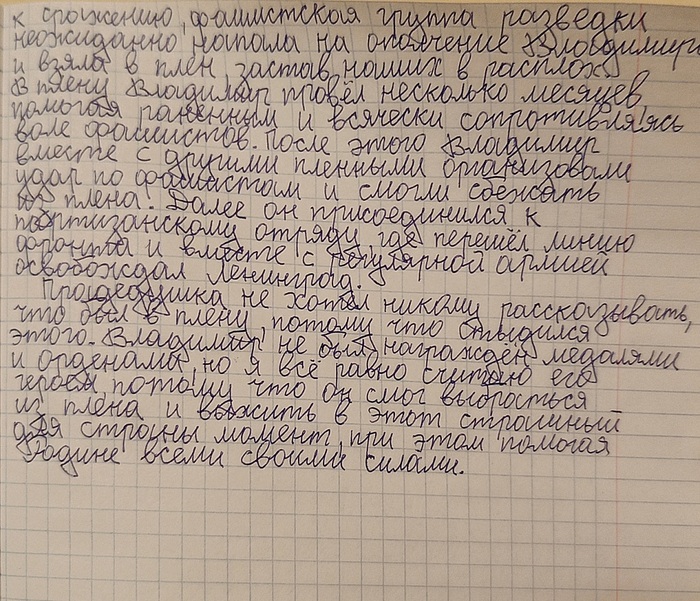 к сражению, фашистская группа разведки
неожиданно напала на ополчение Владимира
и взяла в плен, застав наших в расплох.
В плену Владимир провёл несколько месяцев,
помогая раненным и всячески сопротивляясь
воле фашистов. После этого Владимир
вместе с другими пленными организовали
удар по фашистам и смогли сбежать
из плена. Далее он присоединился к
партизанскому отряду, где перешёл линию
фронта и вместе с регулярной армией
освобождал Ленинград.
Прадедушка не хотел никому рассказывать,
что был в плену, потому что стыдился
этого. Владимир не был награждён медалями
и орденами, но я всё равно считаю его
героем потому что он смог выбраться
из плена и выжить в этот страшный
для страны момент, при этом помогая
Родине всеми своими силами.